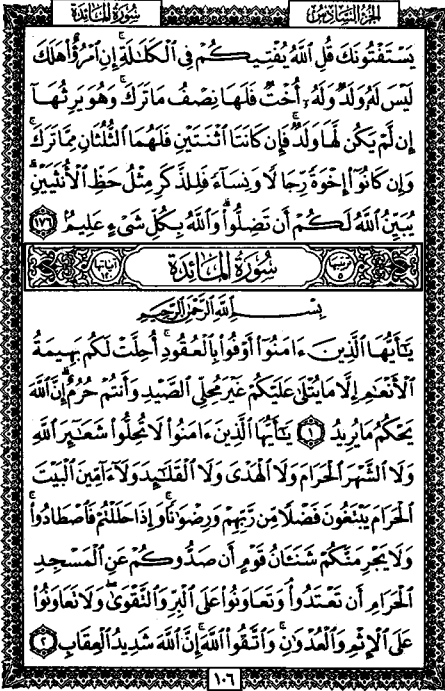 سُورَةُ المَائِدَة
الجُزْءُ السَّادِسُ
يَسْتَفْتُونَكَ قُلِ ٱللَّهُ يُفْتِيكُمْ فِى ٱلْكَلَٰلَةِ ۚ إِنِ ٱمْرُؤٌا۟ هَلَكَ
لَيْسَ لَهُۥ وَلَدٌ وَلَهُۥٓ أُخْتٌ فَلَهَا نِصْفُ مَا تَرَكَ ۚ وَهُوَ يَرِثُهَآ
إِن لَّمْ يَكُن لَّهَا وَلَدٌ ۚ فَإِن كَانَتَا ٱثْنَتَيْنِ فَلَهُمَا ٱلثُّلُثَانِ مِمَّا تَرَكَ ۚ
وَإِن كَانُوٓا۟ إِخْوَةً رِّجَالًا وَنِسَآءً فَلِلذَّكَرِ مِثْلُ حَظِّ ٱلْأُنثَيَيْنِ ۗ
يُبَيِّنُ ٱللَّهُ لَكُمْ أَن تَضِلُّوا۟ ۗ وَٱللَّهُ بِكُلِّ شَىْءٍ عَلِيمٌۢ ١٧٦
ترتيبها ٥ سُورَةُ المَائِدَة آياتها ١٢٠
بِسْمِ ٱللَّهِ ٱلرَّحْمَٰنِ ٱلرَّحِيمِ
يَٰٓأَيُّهَا ٱلَّذِينَ ءَامَنُوٓا۟ أَوْفُوا۟ بِٱلْعُقُودِ ۚ أُحِلَّتْ لَكُم بَهِيمَةُ
ٱلْأَنْعَٰمِ إِلَّا مَا يُتْلَىٰ عَلَيْكُمْ غَيْرَ مُحِلِّى ٱلصَّيْدِ وَأَنتُمْ حُرُمٌ ۗ إِنَّ ٱللَّهَ
يَحْكُمُ مَا يُرِيدُ ١ يَٰٓأَيُّهَا ٱلَّذِينَ ءَامَنُوا۟ لَا تُحِلُّوا۟ شَعَٰٓئِرَ ٱللَّهِ
وَلَا ٱلشَّهْرَ ٱلْحَرَامَ وَلَا ٱلْهَدْىَ وَلَا ٱلْقَلَٰٓئِدَ وَلَآ ءَآمِّينَ ٱلْبَيْتَ
ٱلْحَرَامَ يَبْتَغُونَ فَضْلًا مِّن رَّبِّهِمْ وَرِضْوَٰنًا ۚ وَإِذَا حَلَلْتُمْ فَٱصْطَادُوا۟ ۚ
وَلَا يَجْرِمَنَّكُمْ شَنَـَٔانُ قَوْمٍ أَن صَدُّوكُمْ عَنِ ٱلْمَسْجِدِ
ٱلْحَرَامِ أَن تَعْتَدُوا۟ ۘ وَتَعَاوَنُوا۟ عَلَى ٱلْبِرِّ وَٱلتَّقْوَىٰ ۖ وَلَا تَعَاوَنُوا۟
عَلَى ٱلْإِثْمِ وَٱلْعُدْوَٰنِ ۚ وَٱتَّقُوا۟ ٱللَّهَ ۖ إِنَّ ٱللَّهَ شَدِيدُ ٱلْعِقَابِ ٢
١٠٦